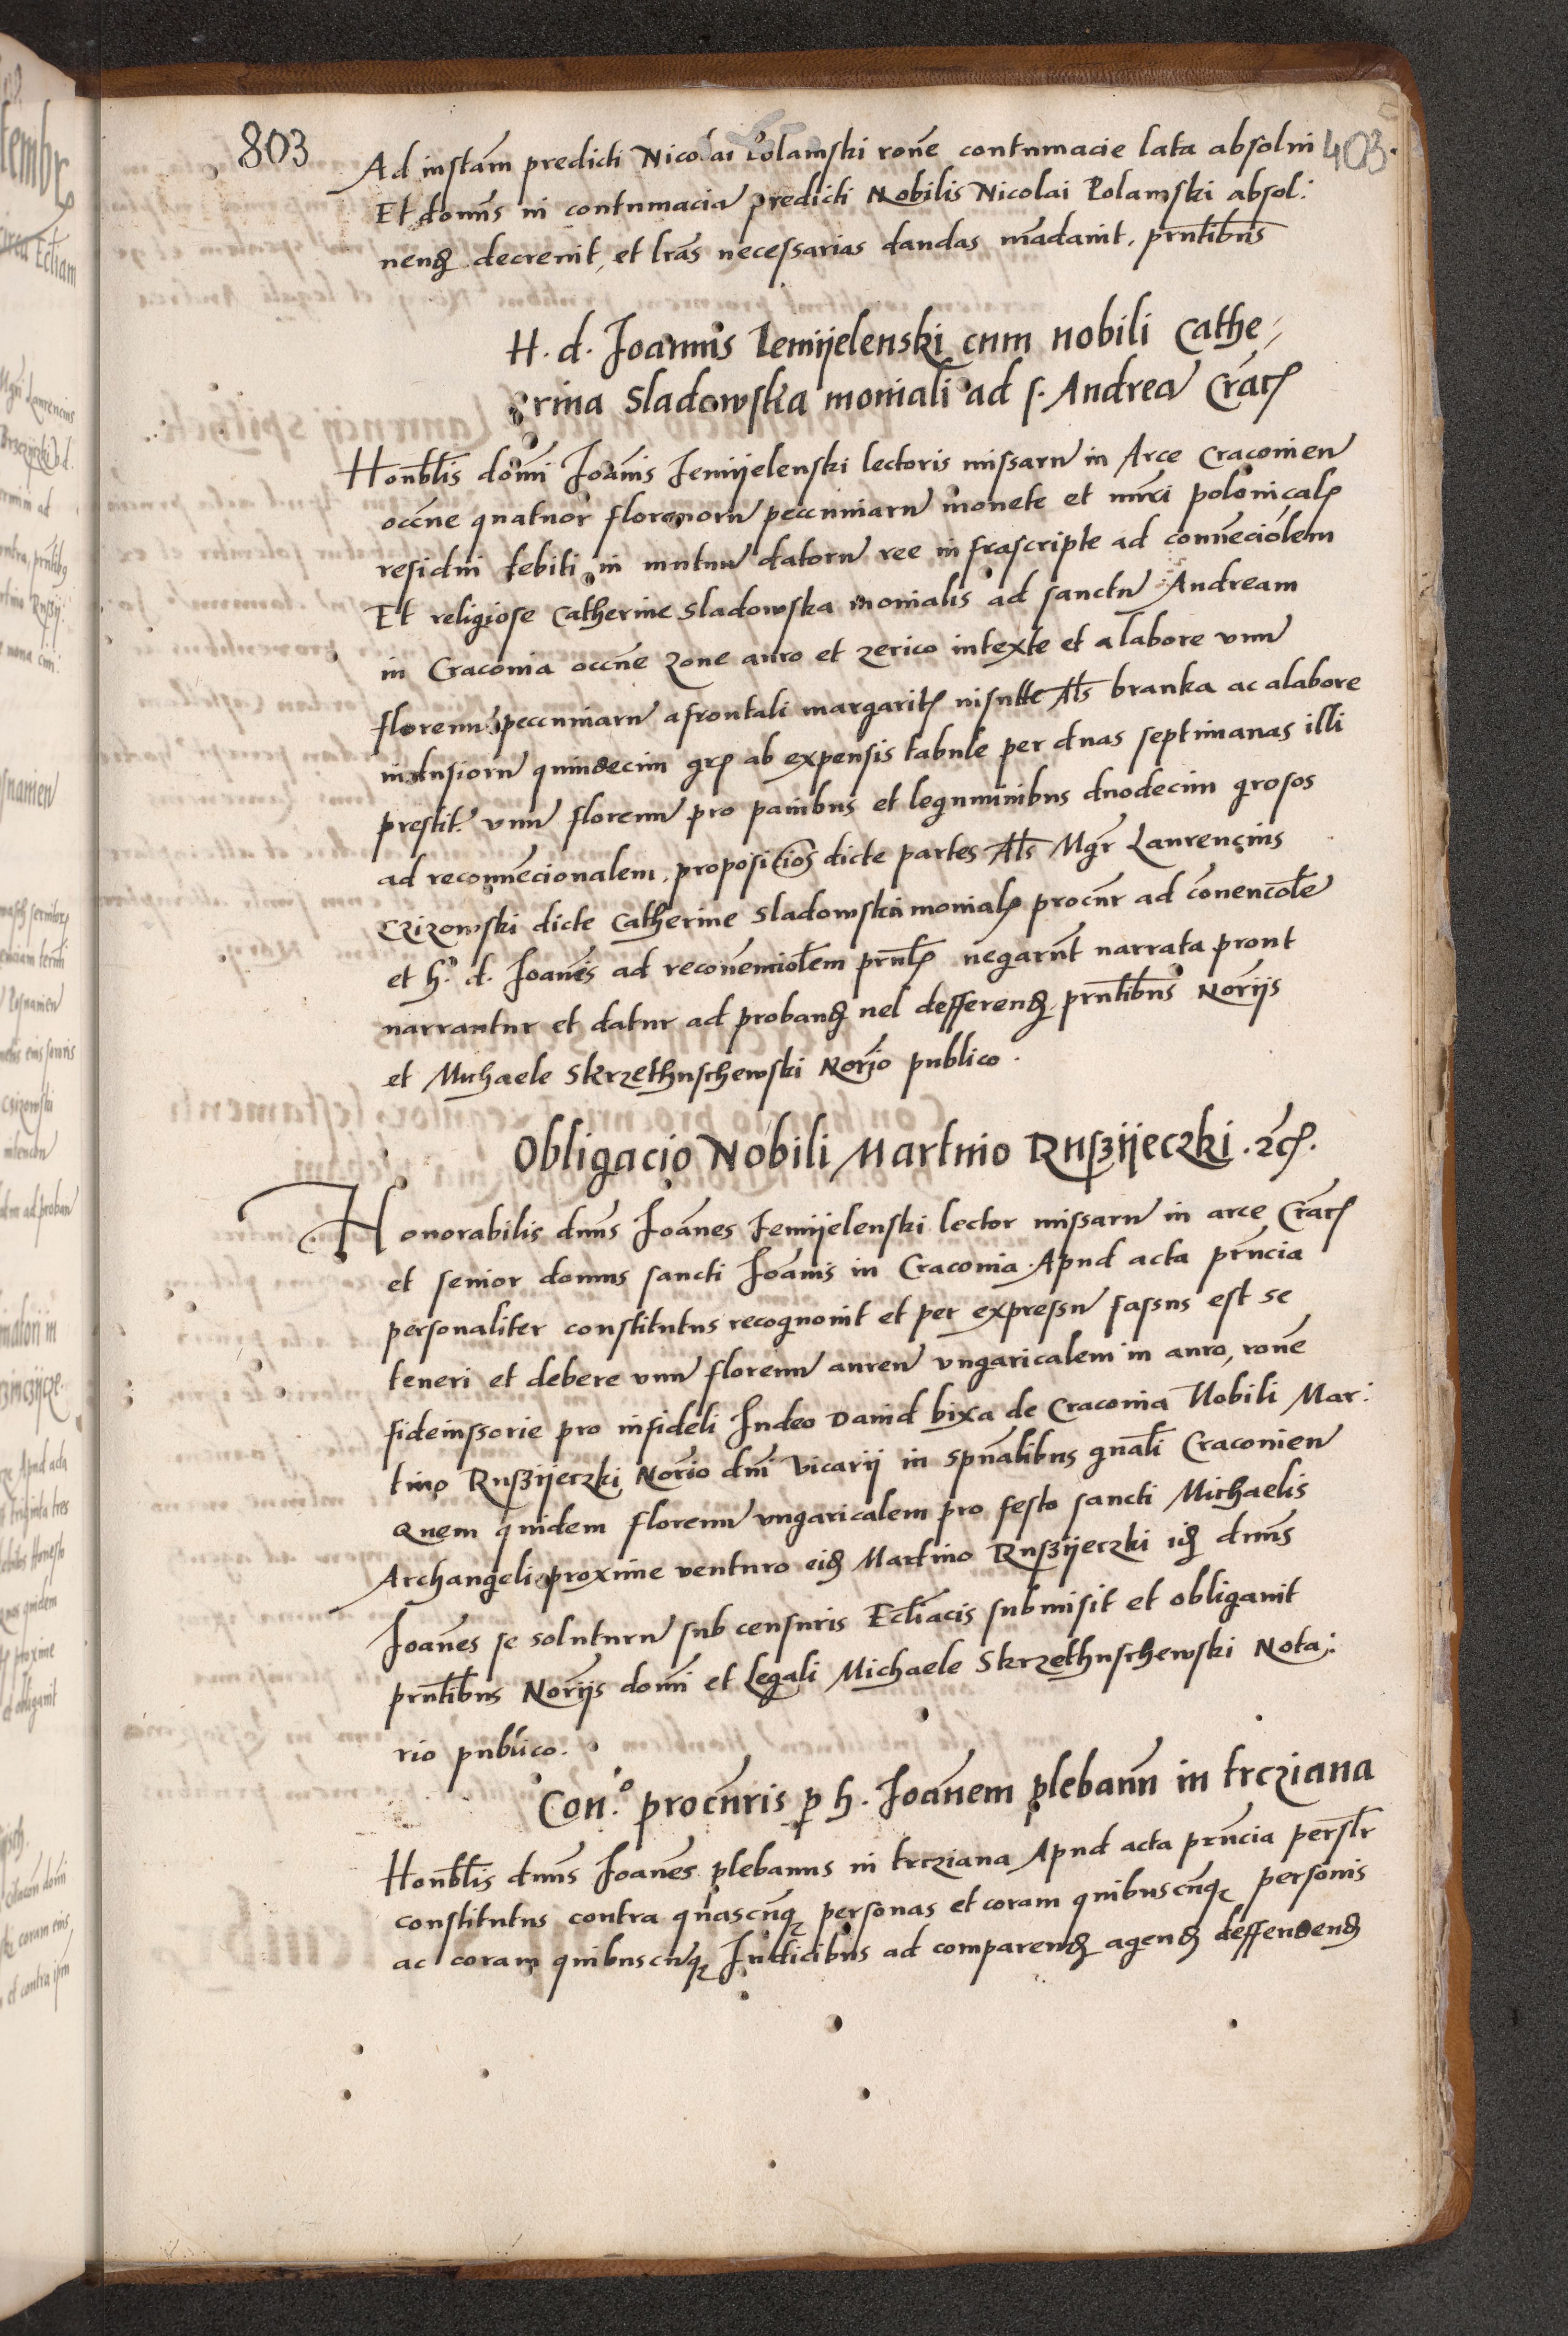 803
403.
Ad instam predicti Nicolai Polamski rone contumacie lata absolui
Et domus in contumacia predicti Nobilis Nicolai Polamski absol:
uend decreuit, et lras necessarias dandas madauit, prntibus
H. d. Joannis Jemijelenski cum nobili Cathe,
rina Sladowska moniali ad s. Andrea Crac
Honblis domi Joanis Jemijelenski lectoris missaru in Arce Cracouien
occne quatuor florenoru peccuniaru monete et nuci polonical
residui debiti in mutuu datoru ree infrascripte ad conuecionlem
Et religiose Catherine Sladowska monialis ad sanctu Andream
in Cracouia occne zone auro et zerico intexte et a labore vnu
florenu peccuniaru a frontali margarit nisutte Als branka ac alabore
quindecim gr ab expensis tabule per duas septimanas illi
prestit. vnu florenu pro panibus et leguminibus duodecim grosos
ad reconuecionalem, propositios dicte partes Als Mgr Laurencius
Czizowski dicte Catherine Sladowska monial procur ad conuencole
et h. d. Joanes ad reconuenciolem prntl negarut narrata prout
narrantur et datur ad proband uel defferend prntibus Norijs
et Michaele Skrzethuschewski Norio publico.
Obligacio Nobili Martino Ruszijeczki .rc.
Honorabilis dnus Joanes Jemijelenski lector missaru in arce Crac
et senior domus sancti Joanis in Cracouia. Apud acta prncia
personaliter constitutus recognouit et per expressu fassus est se
teneri et debere vnu florenu aureu vngaricalem in auro, rone
fideiussorie pro infideli Iudeo Dauid bixa de Cracouia Nobili Mar:
tino Ruszijeczki Norio dni Vicarij in spualibus gnali Cracouien
Quem quidem florenu vngaricalem pro festo sancti Michaelis
Archangeli proxime venturo eid Martino Ruszijeczki id dnus
Joanes se soluturu sub censuris Ecliacis submisit et obligauit
prntibus Norijs domi et Legali Michaele Skrzethuschewski Nota:
rio publico.
Con.o procuris p h. Joanem plebanu in trcziana
Honblis dnus Joanes plebanus in trcziana Apud acta prncia perslr
constitutus contra quascuq personas et coram quibuscuq personis
ac coram quibuscuq Iudicibus ad comparend agend deffendend